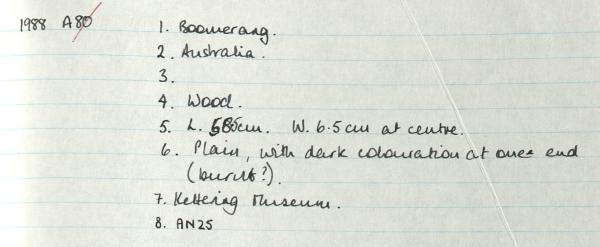 1988 A80
1. Boomerang.
2. Australia.
3.
4. Wood.
5. L. 58.5cm. W. 6.5 cm at centre.
6. Plain, with dark colouration at one end
(burnt?).
7. Kettering Museum.
8. AN25